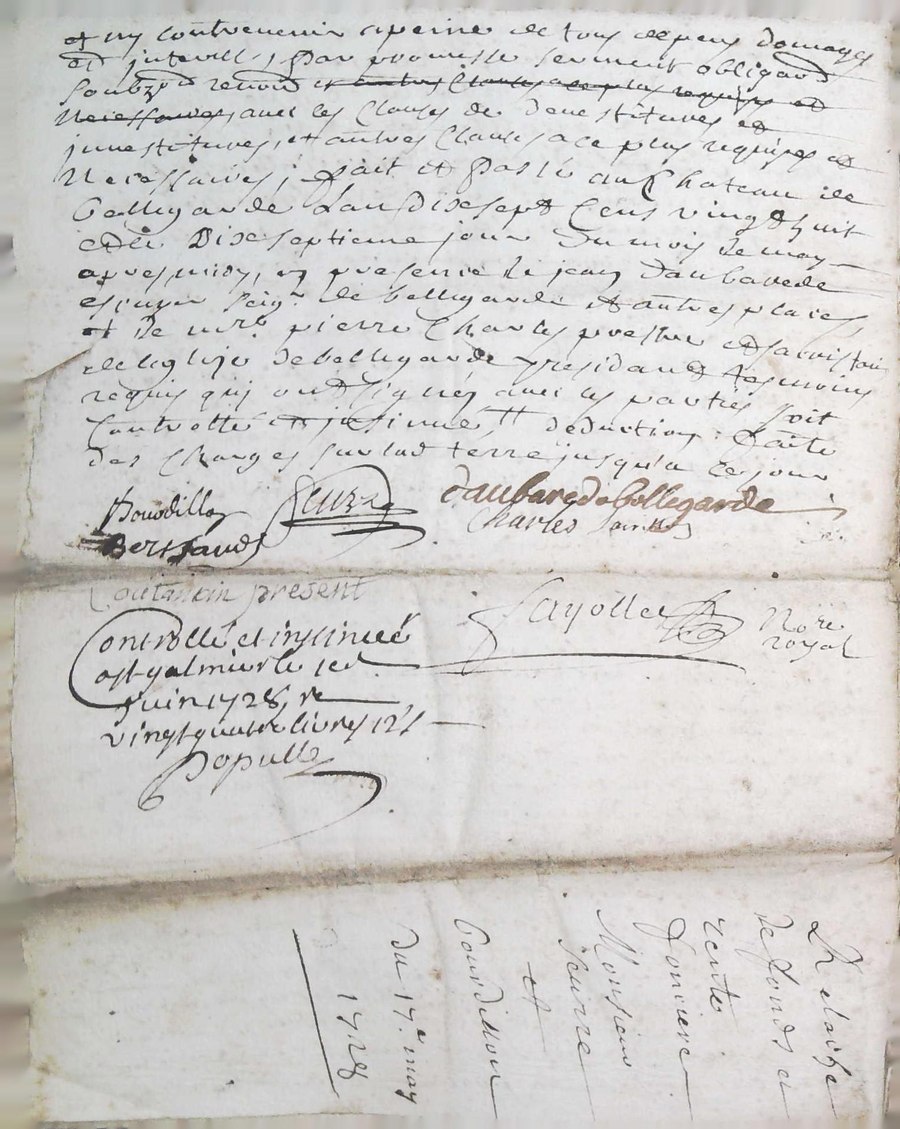 et ny contrevenir a peine de tous depens domages
et interests, par promesse serment obligaon
soubzon renon et autres clauses a ce plus requises et
necessaires, avec les clauses de devestitures et
investitures, et autres clauses a ce plus requises et
necessaires, fait et passé au chateau de
bellegarde l'an dixsept cens vingt huit
et le dixseptieme jour du mois de may
apres midy, en presence de jean daubarede
escuyer seigr. de bellegarde et autres places
et de mre pierre Charles prestre et sacristain
de l'eglise de bellegarde y residant tesmoins
requis qui ont signés avec les parties soit
Controllé et insinué deduction faite
des charges sur lad terre jusqu'a ce jour
Bourdillon
Seurre
daubarede bellegarde
Charles
Bertrand
present
Fayolle
Nore
royal
Controllé et insinué
a st galmier le
Juin 1728, r
vingt quatre livres 12 s
Populle
Relaise
de fonds et
rente
fonciere
Monsieur
Seurre
et
bourdillon
du 17e may
1728